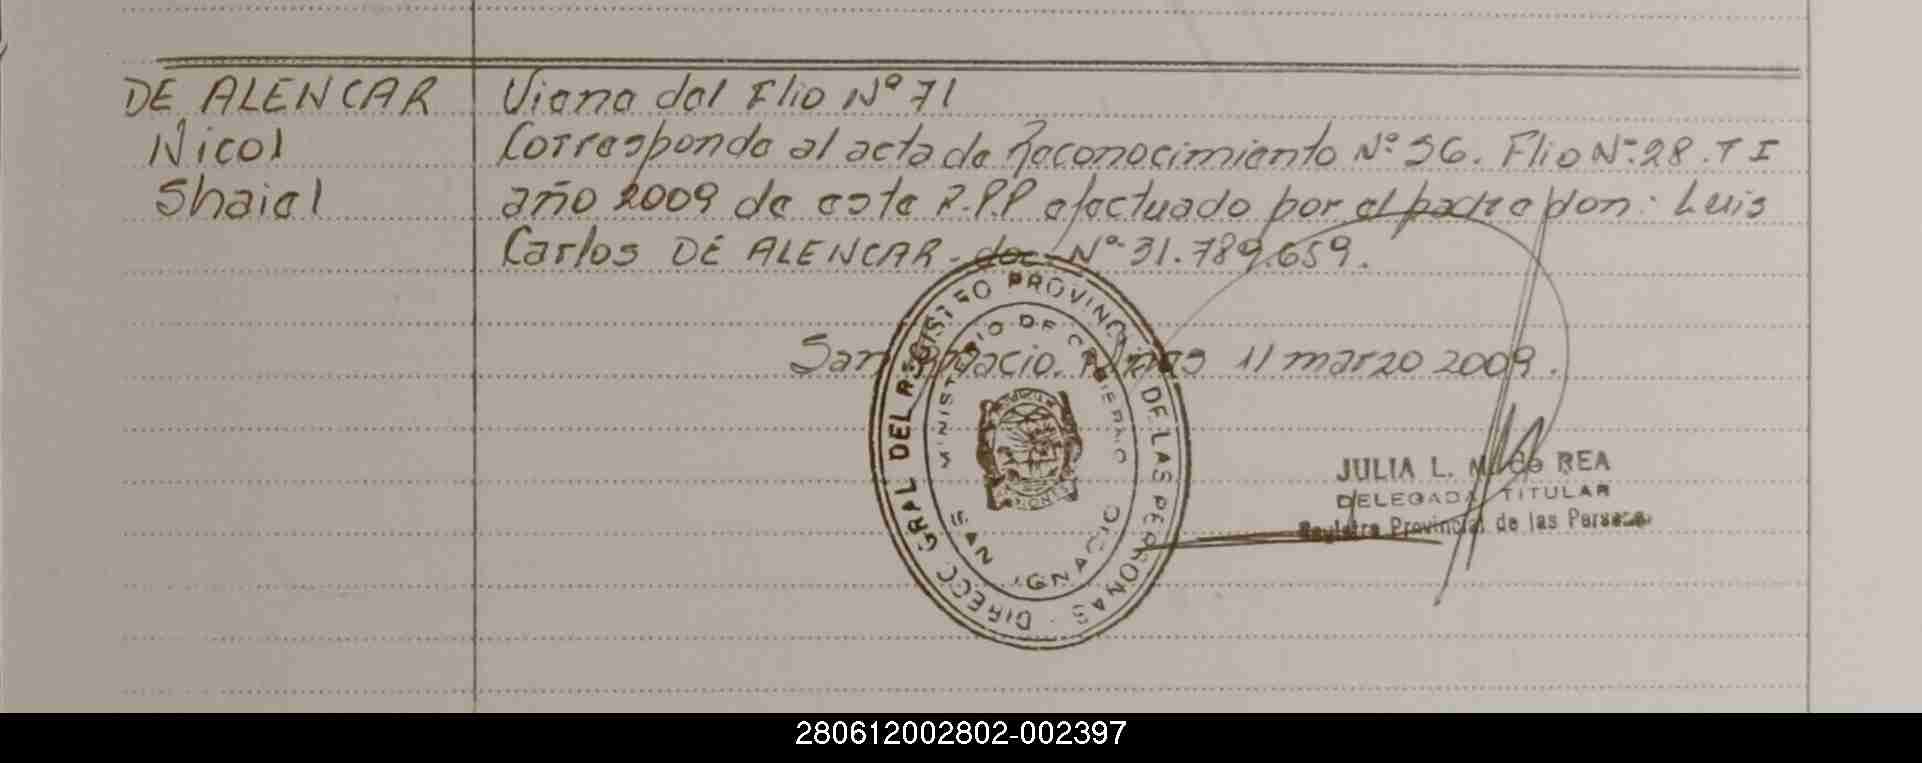 DE ALENCAR Viene del Flio Nº 71
Nicol Corresponde al acta de Reconocimiento Nº 36. Flio Nº 28. T I
Shaiel año 2009 de este R.P.P efectuado por el padre don: Luis
Carlos DE ALENCAR - doc Nº 31.789.659.
San Ignacio. Mnes 11 marzo 2009.
DIRECC GRAL DEL REGISTRO PROVINC DE LAS PERSONAS
MINISTERIO DE GOBIERNO
MISIONES
SAN IGNACIO
JULIA L. M. de REA
DELEGADA TITULAR
Registro Provincial de las Personas
280612002802-002397